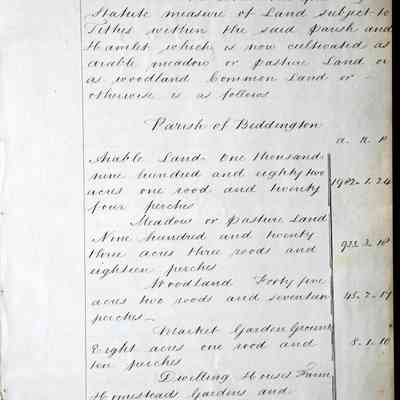 Statute measure of Land subject to
Tithes within the said Parish and
Hamlet which is now cultivated as
arable meadow or pasture Land or
as woodland Common Land or -
otherwise is as follows
Parish of Beddington
A. R. P.
Arable Land One thousand
nine hundred and eighty two
acres one rood and twenty
four perches
1982. 1. 24
Meadow or Pasture Land
Nine hundred and twenty
three acres three roods and
eighteen perches
923. 3. 18
Woodland Forty five
acres two roods and seventeen
perches
45. 2. 17
Market Garden Ground
Eight acres one rood and
ten perches
8. 1. 10
Dwelling Houses Farm
Homesteads Gardens and